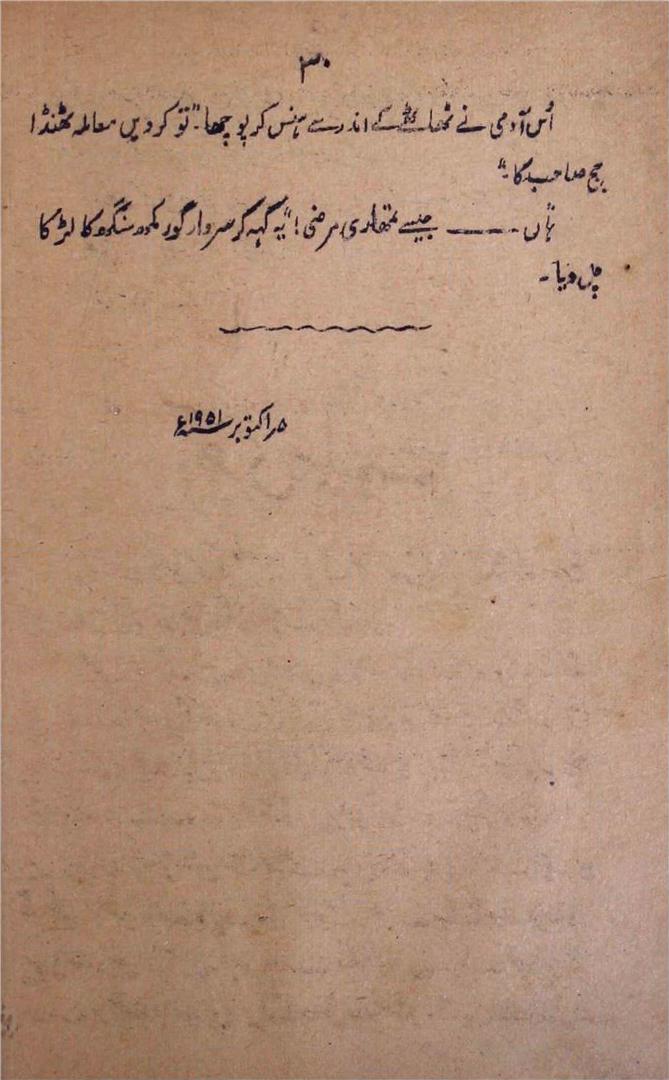 ۳۰
اُس آدمی نے ٹھاٹھے کے اندر سے ہنس کر پوچھا۔ "تو کر دیں معاملہ ٹھنڈا
جج صاحب کا۔"
ہاں ——— جیسے تمھاری مرضی!" یہ کہہ کر سردار گورمکھ سنگھ کا لڑکا
چل دیا۔
۵ر اکتوبر سنہ ۱۹۵۱ء